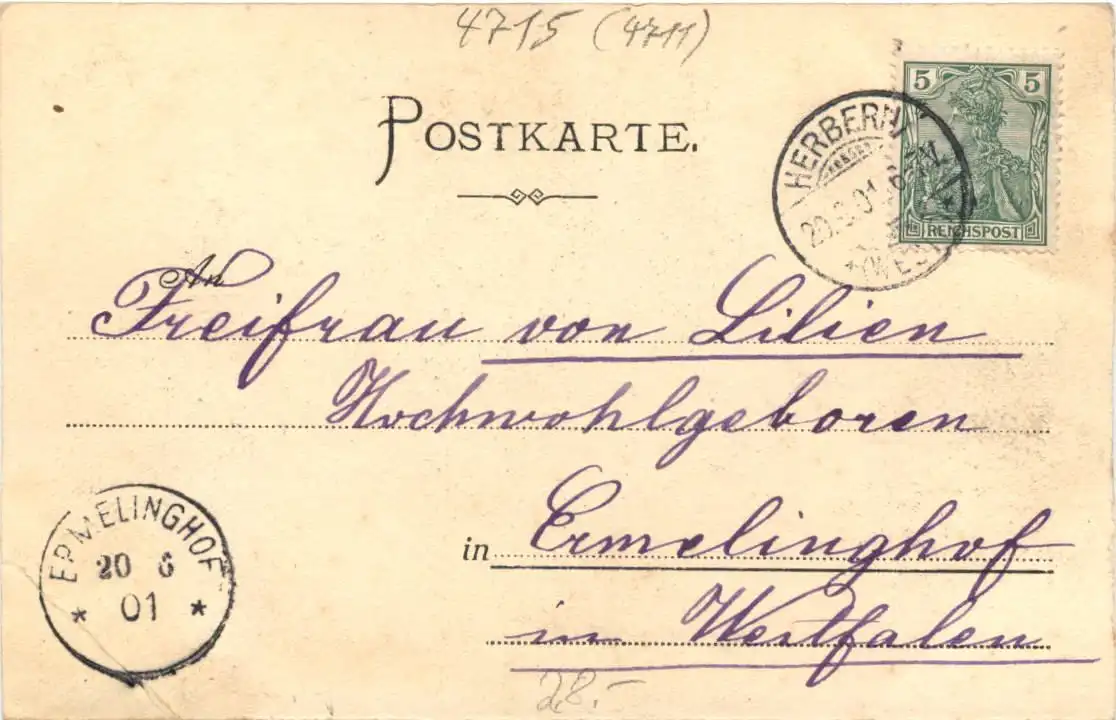 4715 (4711)
POSTKARTE.
5 5
REICHSPOST
HERBERN
20.6.01. 6-7N.
(WESTF
An
Freifrau von Lilien
Hochwohlgeboren
in Ermelinghof
in Westfalen
ERMELINGHOF
20 6
01
28.-